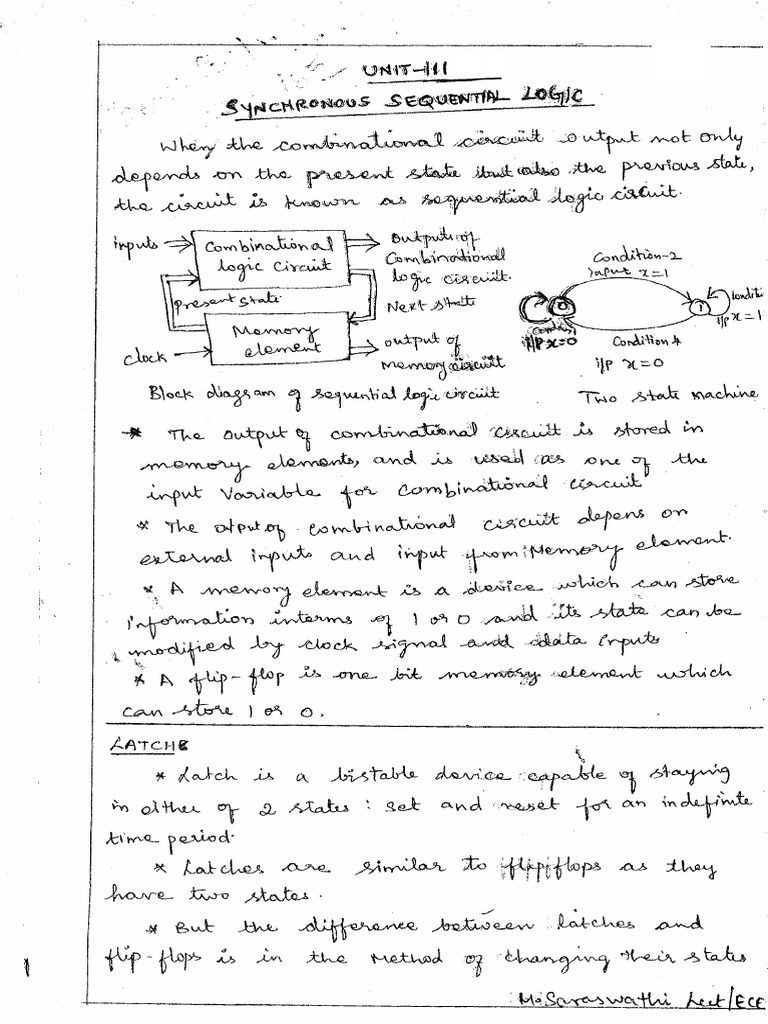 UNIT-III
SYNCHRONOUS SEQUENTIAL LOGIC
When the combinational circuit output not only
depends on the present state but also the previous state,
the circuit is known as sequential logic circuit.
inputs
Combinational
logic circuit
outputs of
combinational
logic circuit.
present state
Next state
Memory
element
clock
output of
Memory circuit
Condition-2
input x=1
0
1
i/p x=0
i/p x=1
Condition 4
i/p x=0
Block diagram of sequential logic circuit
Two state machine
* The output of combinational circuit is stored in
memory elements, and is used as one of the
input variable for combinational circuit
* The output of combinational circuit depens on
external inputs and input from Memory element.
* A memory element is a device which can store
information interms of 1 or 0 and its state can be
modified by clock signal and data inputs
* A flip-flop is one bit memory element which
can store 1 or 0.
LATCHE
* Latch is a bistable device capable of staying
in either of 2 states : set and reset for an indefinite
time period.
* Latches are similar to flipflops as they
have two states.
* But the difference between latches and
flip-flops is in the Method of changing their states
M. Saraswathi Lect/ECE